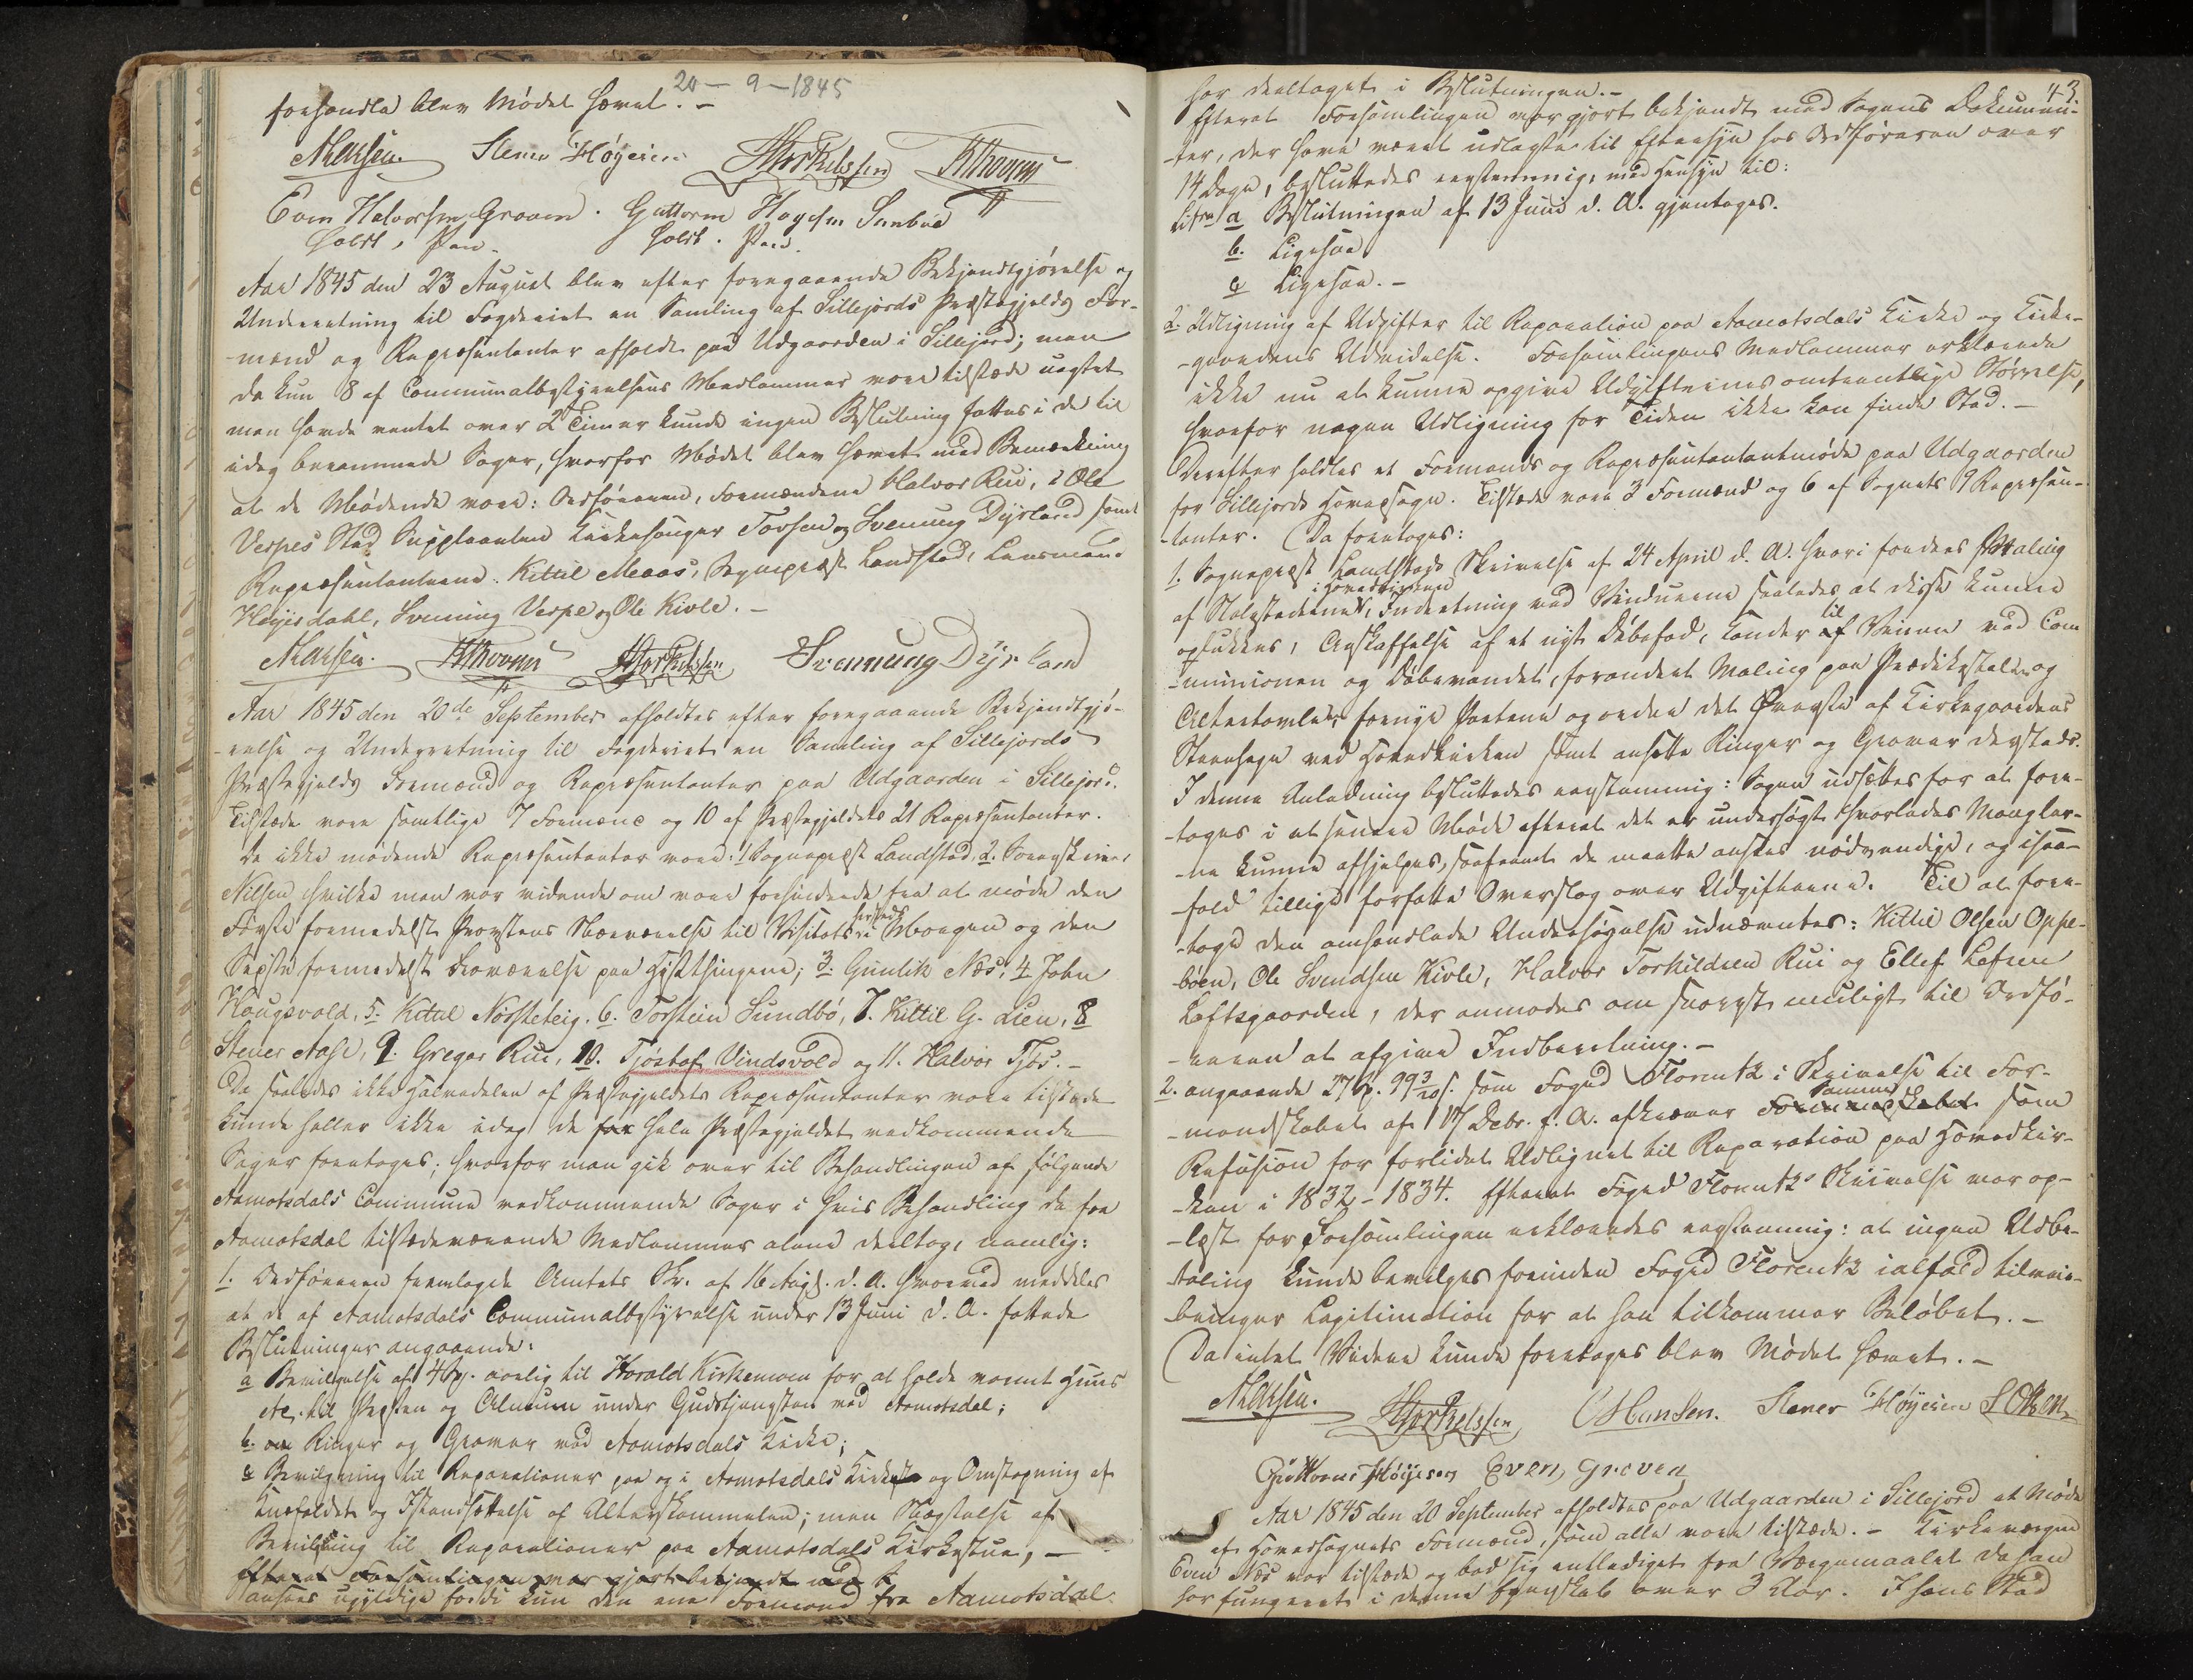 20-9-1845
forhandla blev Mødet hævet. -
Steener Høyesen
Even Halvorsen Groven. Guttorm Høgesen Sunbøe
holdt. Pen. holdt. Pen.
Aar 1845 den 23 August blev efter foregaaende Bekjendtgjørelse og
Underretning til Fogderiet en Samling af Sillejords Præstegjelds For-
-mænd og Repræsentanter afholdt paa Udgaarden i Sillejord; men
da kun 8 af Communalbestyrelsens Medlemmer vare tilstæde uagtet
man havde ventet over 2 Timer kunde ingen Beslutning fattes i de til
idag berammede Sager, hvorfor Mødet blev hævet med Bemærkning
at de Mødende vare: Ordføreren, Formændene Halvor Rui, i Ole
Vespes Sted Suppleanten Kirkesanger Torsen og Svenung Dyrland samt
Repræsentanterne: Kittil Moaas, Sognepræst Landstad, Lensmand
Høyesdahl, Svenung Vespe og Ole Kivle. -
Svennung Dyrland
Aar 1845 den 20de September afholdtes efter foregaaende Bekjendtgjø-
-relse og Underretning til Fogderiet en Samling af Sillejords
Præstegjelds Formænd og Repræsentanter paa Udgaarden i Sillejord.
Tilstæde vare samtlige 7 Formænd og 10 af Præstegjeldets 21 Repræsentanter.
De ikke mødende Repræsentanter vare: 1 Sognepræst Landstad, 2. Sorenskriver
Nilsen hvilke man var vidende om vare forhindrede fra at møde den
Første formedelst Provstens Nærværelse til Visitats i Moegen og den
Sidste formedelst Fraværelse paa Høstthingene; 3. Gunlik Næs, 4 John
Haugsvold, 5. Kittil Nordsteteig. 6. Torstein Sundbø, 7. Kittil G. Lien, 8
Stener Aase, 9. Gregar Rue, 10. Tjøstaf Vindsvold og 11. Halvor Tjøs. -
Da saaledes ikke Halvedelen af Præstegjeldets Repræsentanter vare tilstæde
kunde heller ikke idag de for hele Præstegjeldet vedkommende
Sager foretages; hvorfor man gik over til Behandlingen af følgende
Aamotsdals Commune vedkommende Sager i hvis Behandling de fra
Aamotsdal tilstædeværende Medlemmer alene deeltog, nemlig:
1. Ordføreren fremlagde Amtets Skr. af 16 Augs. d. A. hvorved meddeles
at de af Aamotsdals Communalbestyrelse under 13 Juni d. A. fattede
Beslutninger angaaende:
a Bevilgelse af 4 Sp. aarlig til Harald Kirkemoen for at holde varmt Huus
etc. til Præsten og Almuen under Gudstjenesten ved Aamotsdal;
b. om Ringer og Graver ved Aamotsdals Kirke;
c Bevilgning til Reparationer paa og i Aamotsdals Kirke og Omstopning af
Knæfaldet og Istandsættelse af Alterskammelen; men Nægtelse af
Bevilgning til Reparationer paa Aamotsdals Kirkestue, -
Efterat Forsamlingen var gjort bekjendt med S
ansees ugyldige fordi kun den ene Formand fra Aamotsdal
43
har deeltaget i Beslutningen. -
Efterat Forsamlingen var gjort bekjendt med Sagens Dokumen-
-ter, der have været udlagte til Eftersyn hos Ordføreren over
14 Dage, besluttedes eenstemmig, med Hensyn til:
Litra a Beslutningen af 13 Juni d. A. gjentages.
b. Ligesaa
c Ligesaa. -
2. Udligning af Udgifter til Reparation paa Aamotsdals Kirke og Kirke-
-gaardens Udvidelse. Forsamlingens Medlemmer erklærede
ikke nu at kunne opgive Udgifternes omtrentlige Størrelse,
hvorfor nogen Udligning for Tiden ikke kan finde Sted. -
Derefter holdtes et Formands og Repræsentantmøde paa Udgaarden
for Sillejords Hovedsogn. Tilstæde vare 3 Formænd og 6 af Sognets 9 Repræsen-
-tanter. Da foretoges:
1. Sognepræst Landstads Skrivelse af 24 April d. A. hvori fordres Maling
i Hovedkirken
af Stolestaderne, Indretning ved Vinduerne saaledes at disse kunne
til
oplukkes, Anskaffelse af et nyt Døbefad, Kander af Vinen ved Com
-munionen og Døbevandet, forandret Maling paa Prædikestolen og
Altertavlen fornye Portene og endeel det Øverste af Kirkegaardens
Steenhegn ved Hovedkirken samt ansætte Ringer og Graver dersteds.
I denne Anledning besluttedes eenstemmig: Sagen udsættes for at fore-
-tages i et senere Møde efterat det er undersøgt hvorledes Mangler-
-ne kunne afhjelpes, saafremt de maatte ansees nødvendige, og i saa-
-fald tillige forfatte Overslag over Udgifterne. Til at fore-
-tage den omhandlede Undersøgelse udnævntes: Kittil Olsen Oppe-
-bøen, Ole Svendsen Kivle, Halvor Torkildsen Rui og Ellef Lofsen
Loftsgaarden, der anmodes om snarest muligt til Ordfø-
-reren at afgive Indberetning. -
2. angaaende 27 Sp. 99 3/20 s. som Foged Florentz i Skrivelse til For-
-mandskabet af 17 Debr. f. A. afkræver Formandskabet som
Refusion for forlidet Udlignet til Reparation paa Hovedkir-
-ken i 1832-1834. Efterat Foged Florentz' Skrivelse var op-
-læst for Forsamlingen erklæredes eenstemmig: at ingen Udbe-
-taling kunde bevilges forinden Foged Florentz ialfald tilveie-
-bringer Legitimation for at han tilkommer Beløbet. -
Da intet Videre kunde foretages blev Mødet hævet. -
Hansen. Stener Høyesen S Olsen
Guttorm Høyesen Even Groven
Aar 1845 den 20 September afholdtes paa Udgaarden i Sillejord et Møde
af Hovedsognets Formænd, som alle vare tilstæde. - Kirkeværgen
Even Næs var tilstæde og bad sig entlediget fra Værgemaalet da han
har fungeret i denne Egenskab over 3 Aar. I hans Sted